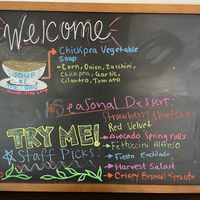 Welcome
Chickpea Vegetable
Soup
-Corn, Onion, Zucchini,
Chickpea, Garlic,
Cilantro, Tomato
SOUP
OF THE DAY
Seasonal Dessert:
Strawberry Shortcake
Red Velvet
TRY ME!
Staff Picks
Avocado Spring rolls
Fettuccini Alfredo
Fiesta Enchilada
Harvest Salad
Crispy Brunch